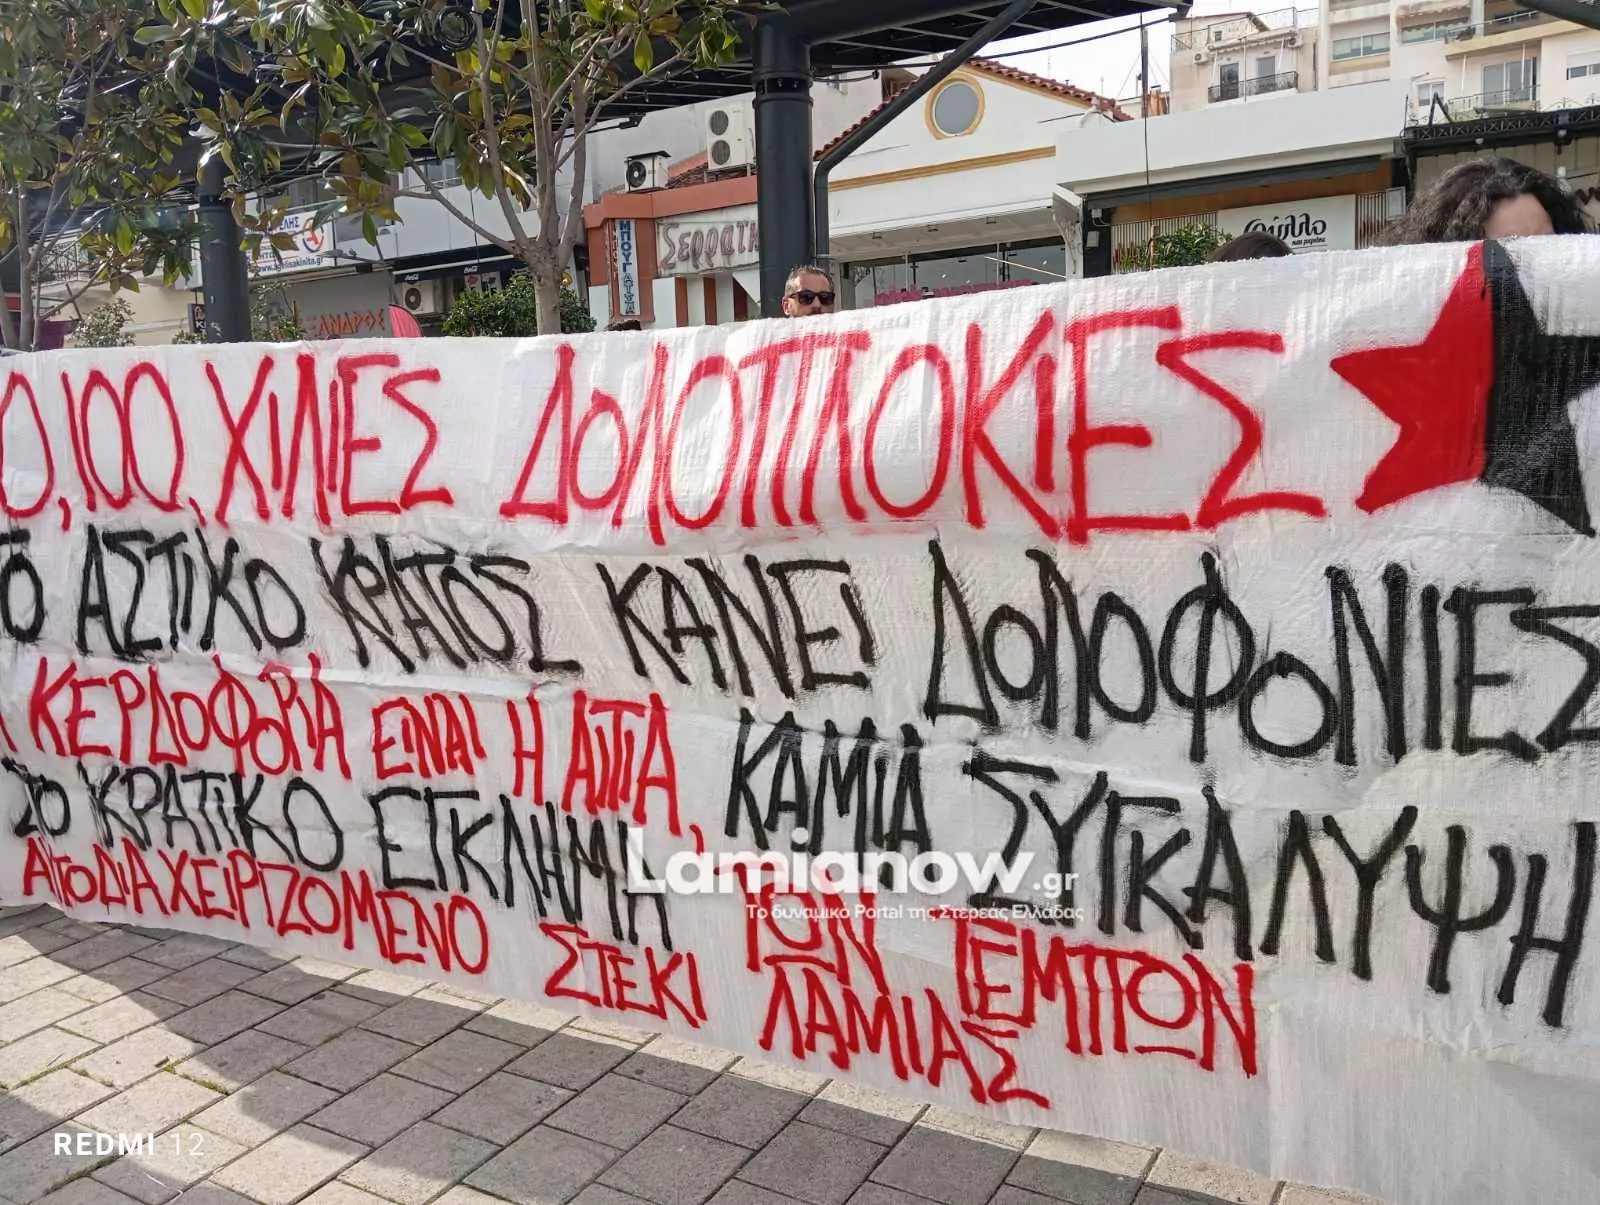 ΜΠΟΥΓΑΤΣΑ
Σερραϊκ
φύλλο
0, 100, ΧΙΛΙΕΣ ΔΟΛΟΠΛΟΚΙΕΣ
ΤΟ ΑΣΤΙΚΟ ΚΡΑΤΟΣ ΚΑΝΕΙ ΔΟΛΟΦΟΝΙΕΣ
Η ΚΕΡΔΟΦΟΡΙΑ ΕΙΝΑΙ Η ΑΙΤΙΑ, ΚΑΜΙΑ ΣΥΓΚΑΛΥΨΗ
ΣΤΟ ΚΡΑΤΙΚΟ ΕΓΚΛΗΜΑ ΤΩΝ ΤΕΜΠΩΝ
ΑΥΤΟΔΙΑΧΕΙΡΙΖΟΜΕΝΟ ΣΤΕΚΙ ΛΑΜΙΑΣ
Lamianow.gr
Το δυναμικό Portal της Στερεάς Ελλάδας
REDMI 12